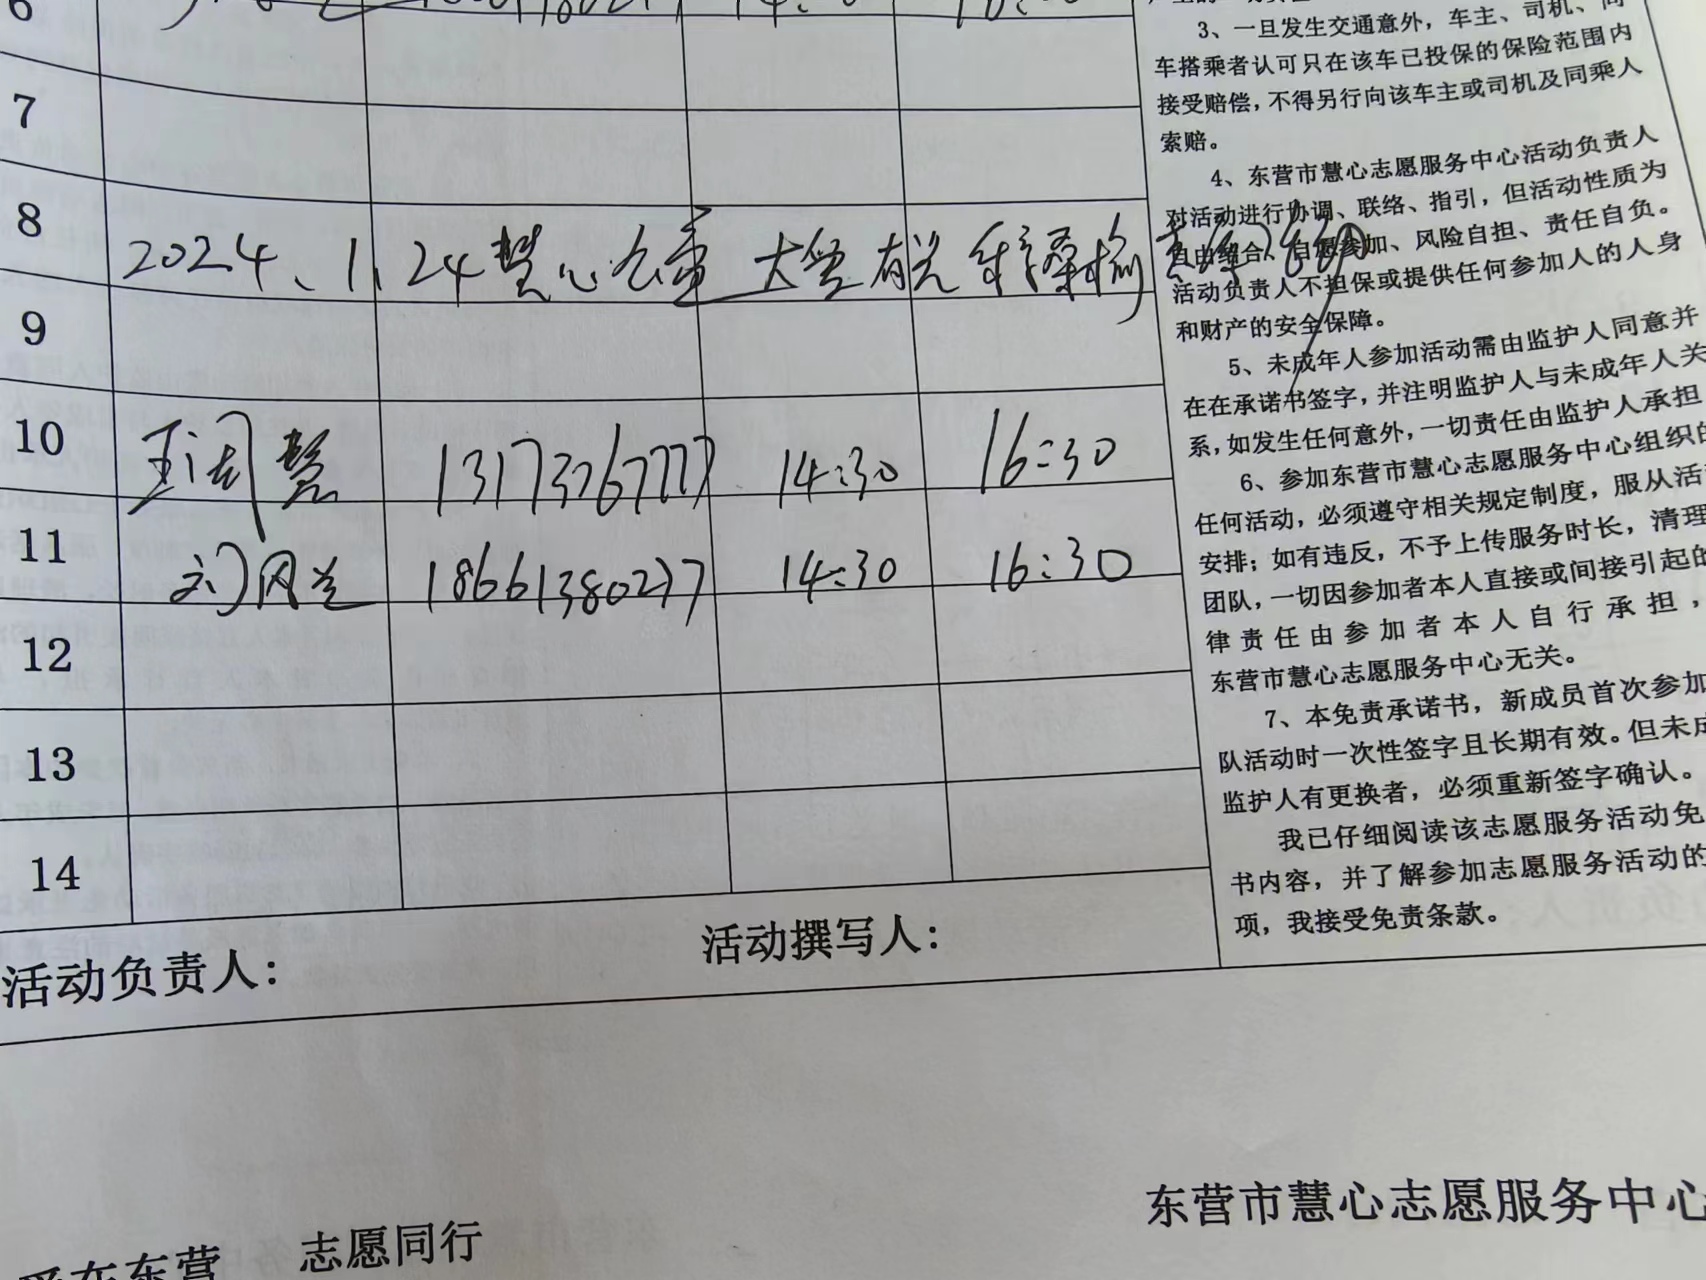 6
7
8
2024、1、24 慧心
9
10 慧 13173767777 14:30 16:30
11 刘 18661380277 14:30 16:30
12
13
14
活动负责人： 活动撰写人：
3、一旦发生交通意外，车主、司机、同
车搭乘者认可只在该车已投保的保险范围内
接受赔偿，不得另行向该车主或司机及同乘人
索赔。
4、东营市慧心志愿服务中心活动负责人
对活动进行协调、联络、指引，但活动性质为
自由结合、自愿参加、风险自担、责任自负。
活动负责人不担保或提供任何参加人的人身
和财产的安全保障。
5、未成年人参加活动需由监护人同意并
在在承诺书签字，并注明监护人与未成年人关
系，如发生任何意外，一切责任由监护人承担
6、参加东营市慧心志愿服务中心组织的
任何活动，必须遵守相关规定制度，服从活动
安排；如有违反，不予上传服务时长，清理
团队，一切因参加者本人直接或间接引起的
律责任由参加者本人自行承担，
东营市慧心志愿服务中心无关。
7、本免责承诺书，新成员首次参加
队活动时一次性签字且长期有效。但未成
监护人有更换者，必须重新签字确认。
我已仔细阅读该志愿服务活动免
书内容，并了解参加志愿服务活动的
项，我接受免责条款。
东营市慧心志愿服务中心
爱在东营 志愿同行